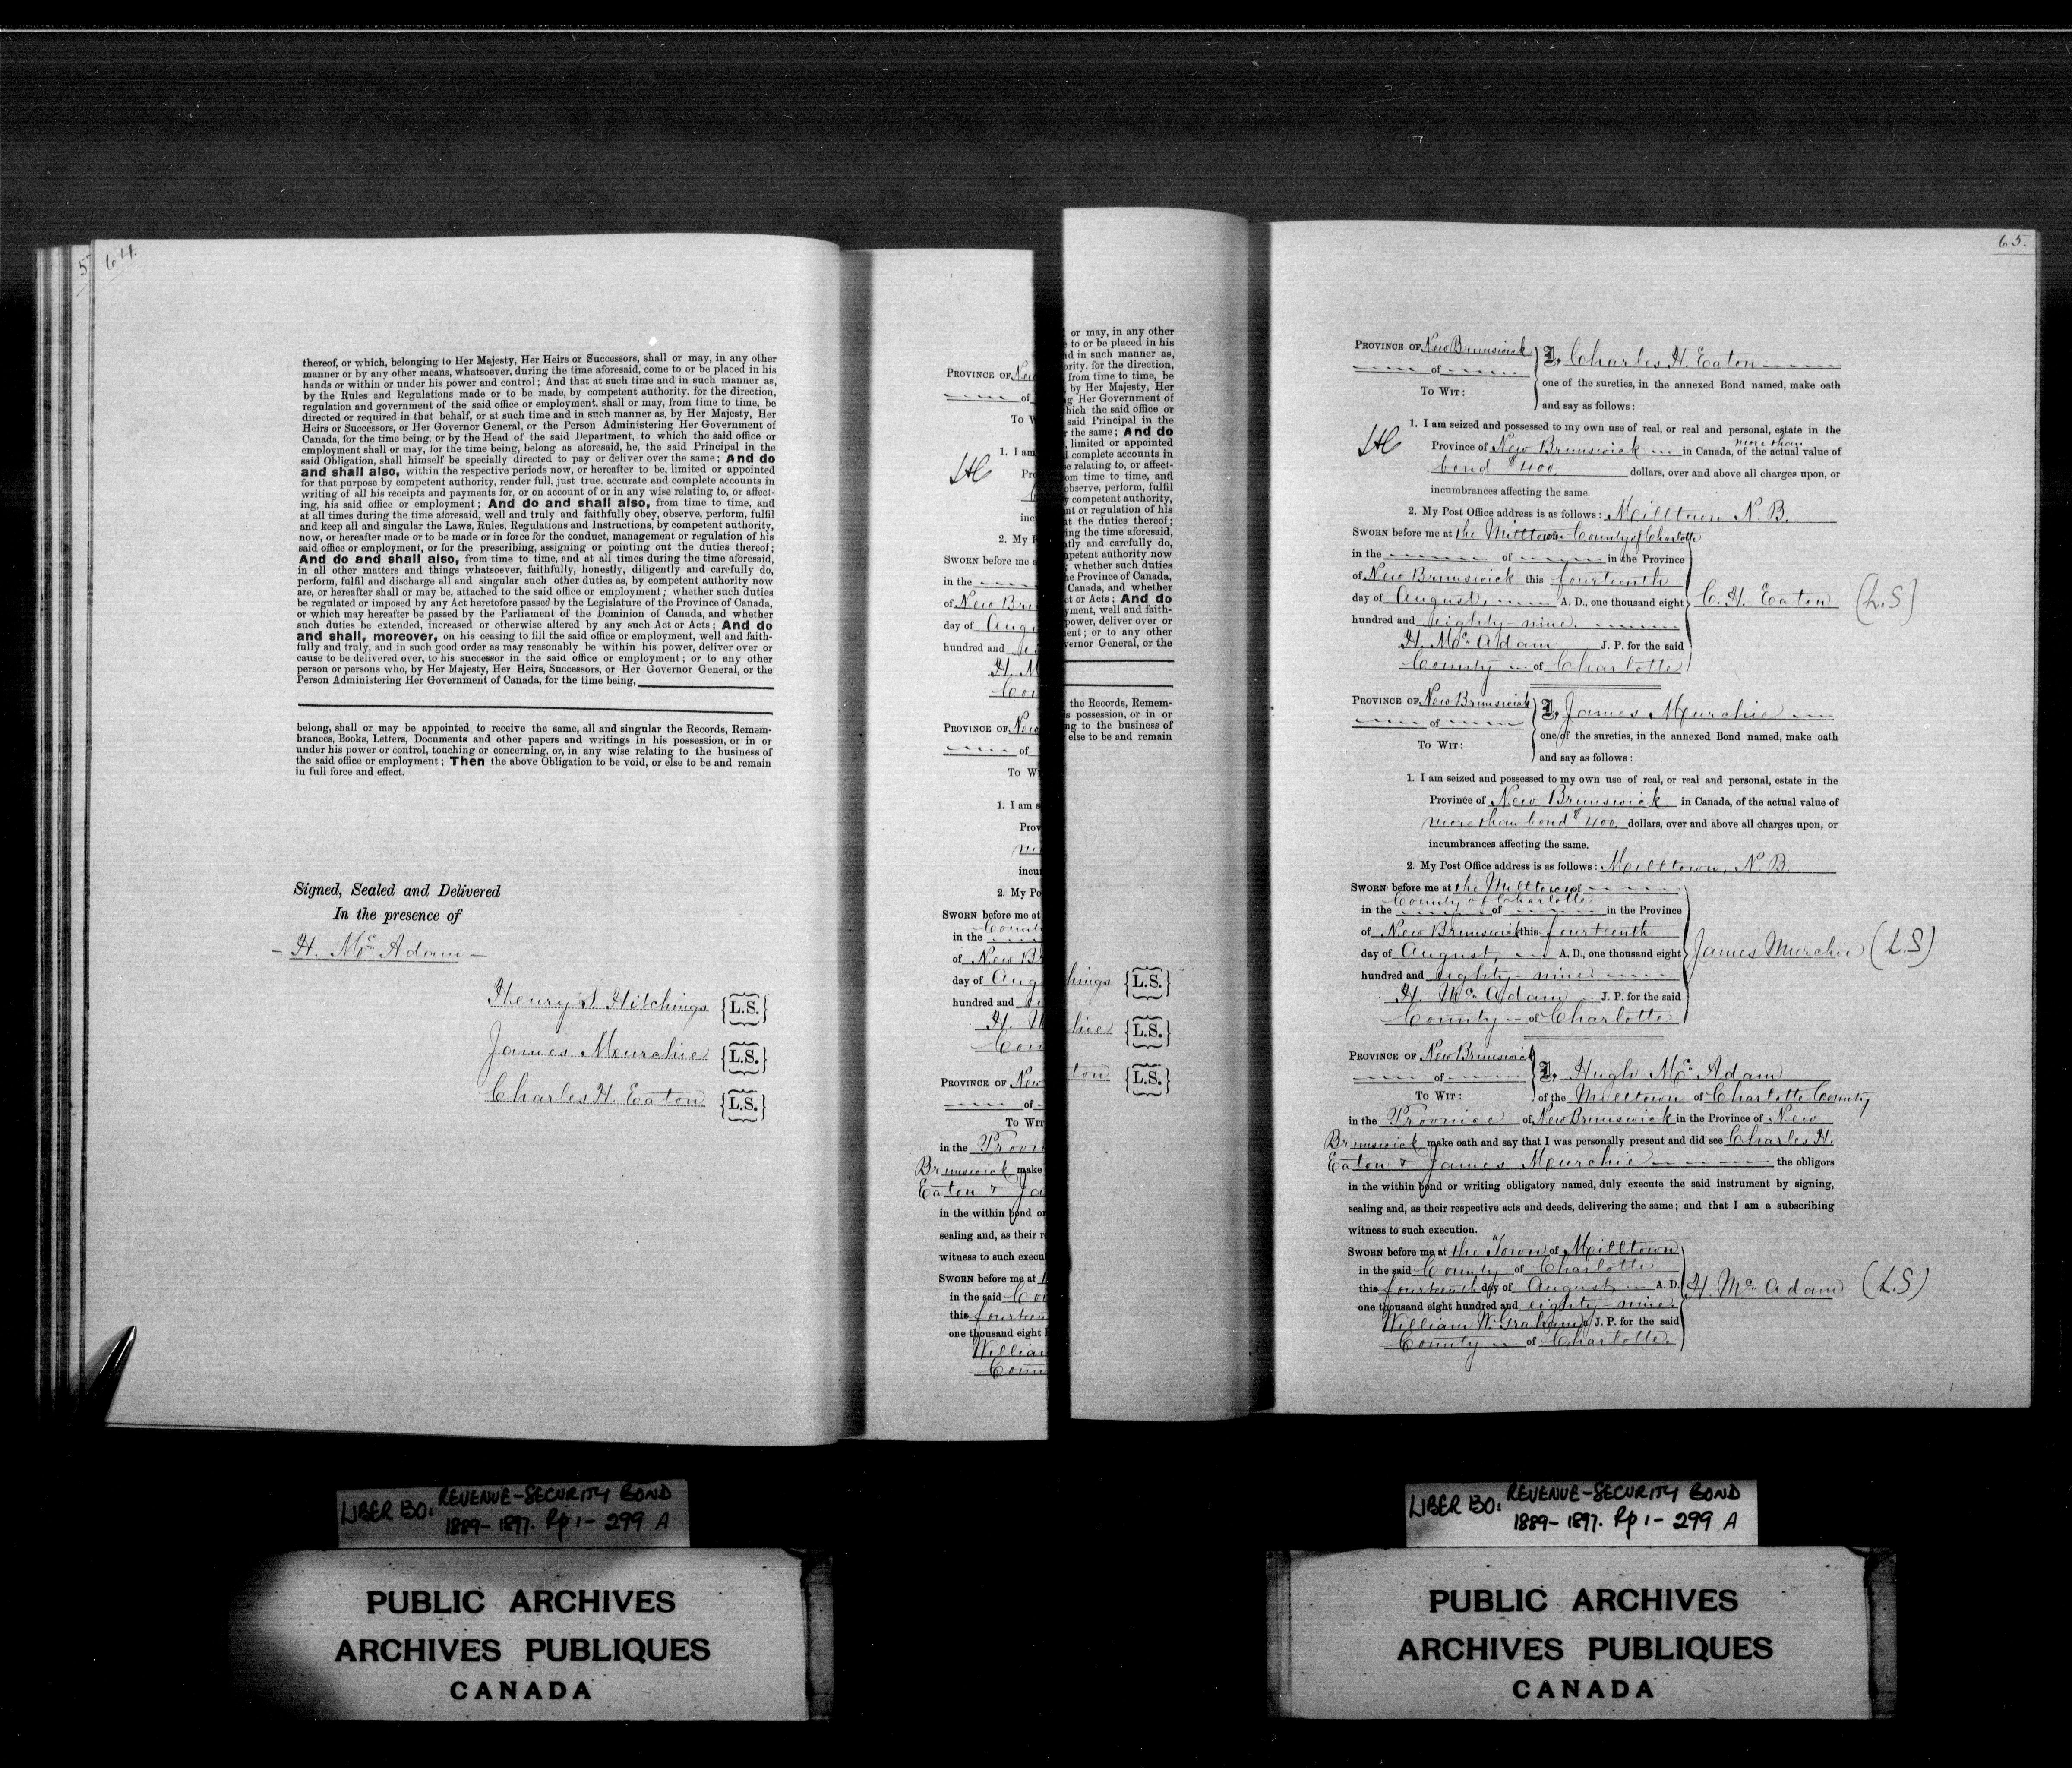 64.
5
thereof, or which, belonging to Her Majesty, Her Heirs or Successors, shall or may, in any other
manner or by any other means, whatsoever, during the time aforesaid, come to or be placed in his
hands or within or under his power and control; And that at such time and in such manner as,
by the Rules and Regulations made or to be made, by competent authority, for the direction,
regulation and government of the said office or employment, shall or may, from time to time, be
directed or required in that behalf, or at such time and in such manner as, by Her Majesty, Her
Heirs or Successors, or Her Governor General, or the Person Administering Her Government of
Canada, for the time being, or by the Head of the said Department, to which the said office or
employment shall or may, for the time being, belong as aforesaid, he, the said Principal in the
said Obligation, shall himself be specially directed to pay or deliver over the same; And do
and shall also, within the respective periods now, or hereafter to be, limited or appointed
for that purpose by competent authority, render full, just true, accurate and complete accounts in
writing of all his receipts and payments for, or on account of or in any wise relating to, or affect-
ing, his said office or employment; And do and shall also, from time to time, and
at all times during the time aforesaid, well and truly and faithfully obey, observe, perform, fulfil
and keep all and singular the Laws, Rules, Regulations and Instructions, by competent authority,
now, or hereafter made or to be made or in force for the conduct, management or regulation of his
said office or employment, or for the prescribing, assigning or pointing out the duties thereof;
And do and shall also, from time to time, and at all times during the time aforesaid,
in all other matters and things whatsoever, faithfully, honestly, diligently and carefully do,
perform, fulfil and discharge all and singular such other duties as, by competent authority now
are, or hereafter shall or may be, attached to the said office or employment; whether such duties
be regulated or imposed by any Act heretofore passed by the Legislature of the Province of Canada,
or which may hereafter be passed by the Parliament of the Dominion of Canada, and whether
such duties be extended, increased or otherwise altered by any such Act or Acts; And do
and shall, moreover, on his ceasing to fill the said office or employment, well and faith-
fully and truly, and in such good order as may reasonably be within his power, deliver over or
cause to be delivered over, to his successor in the said office or employment; or to any other
person or persons who, by Her Majesty, Her Heirs, Successors, or Her Governor General, or the
Person Administering Her Government of Canada, for the time being,
belong, shall or may be appointed to receive the same, all and singular the Records, Remem-
brances, Books, Letters, Documents and other papers and writings in his possession, or in or
under his power or control, touching or concerning, or, in any wise relating to the business of
the said office or employment; Then the above Obligation to be void, or else to be and remain
in full force and effect.
Signed, Sealed and Delivered
In the presence of
- H. Mc Adam -
Henry S Hitchings {L.S.}
James Murchie {L.S.}
Charles H. Eaton {L.S.}
65.
PROVINCE OF New Brunswick
of
TO WIT:
I, Charles H. Eaton
one of the sureties, in the annexed Bond named, make oath
and say as follows:
1. I am seized and possessed to my own use of real, or real and personal, estate in the
Province of New Brunswick in Canada, of the more than actual value of
bond $400. dollars, over and above all charges upon, or
incumbrances affecting the same.
2. My Post Office address is as follows: Milltown N.B.
SWORN before me at the Milltown County of Charlotte
in the of in the Province
of New Brunswick this fourteenth
day of August, A. D., one thousand eight
hundred and eighty-nine.
H. Mc Adam J. P. for the said
County of Charlotte
C. H. Eaton (L.S)
PROVINCE OF New Brunswick
of
TO WIT:
I, James Murchie
one of the sureties, in the annexed Bond named, make oath
and say as follows:
1. I am seized and possessed to my own use of real, or real and personal, estate in the
Province of New Brunswick in Canada, of the actual value of
more than bond $400. dollars, over and above all charges upon, or
incumbrances affecting the same.
2. My Post Office address is as follows: Milltown, N.B.
SWORN before me at the Milltown of
County of Charlotte
in the of in the Province
of New Brunswick this fourteenth
day of August, A. D., one thousand eight
hundred and eighty-nine
H. Mc Adam J. P. for the said
County of Charlotte
James Murchie (L.S)
PROVINCE OF New Brunswick
of
TO WIT:
I, Hugh Mc Adam
of the Milltown of Charlotte County
in the Province of New Brunswick in the Province of New
Brunswick make oath and say that I was personally present and did see Charles H.
Eaton & James Murchie the obligors
in the within bond or writing obligatory named, duly execute the said instrument by signing,
sealing and, as their respective acts and deeds, delivering the same; and that I am a subscribing
witness to such execution.
SWORN before me at the Town of Milltown
in the said County of Charlotte
this fourteenth day of August, A. D.
one thousand eight hundred and eighty-nine.
William W. Graham J. P. for the said
County of Charlotte.
H. Mc Adam (L.S)
LIBER 130: REVENUE-SECURITY BOND
1889-1897. Pp 1-299 A
PUBLIC ARCHIVES
ARCHIVES PUBLIQUES
CANADA
LIBER 130: REVENUE-SECURITY BOND
1889-1897. Pp 1-299 A
PUBLIC ARCHIVES
ARCHIVES PUBLIQUES
CANADA